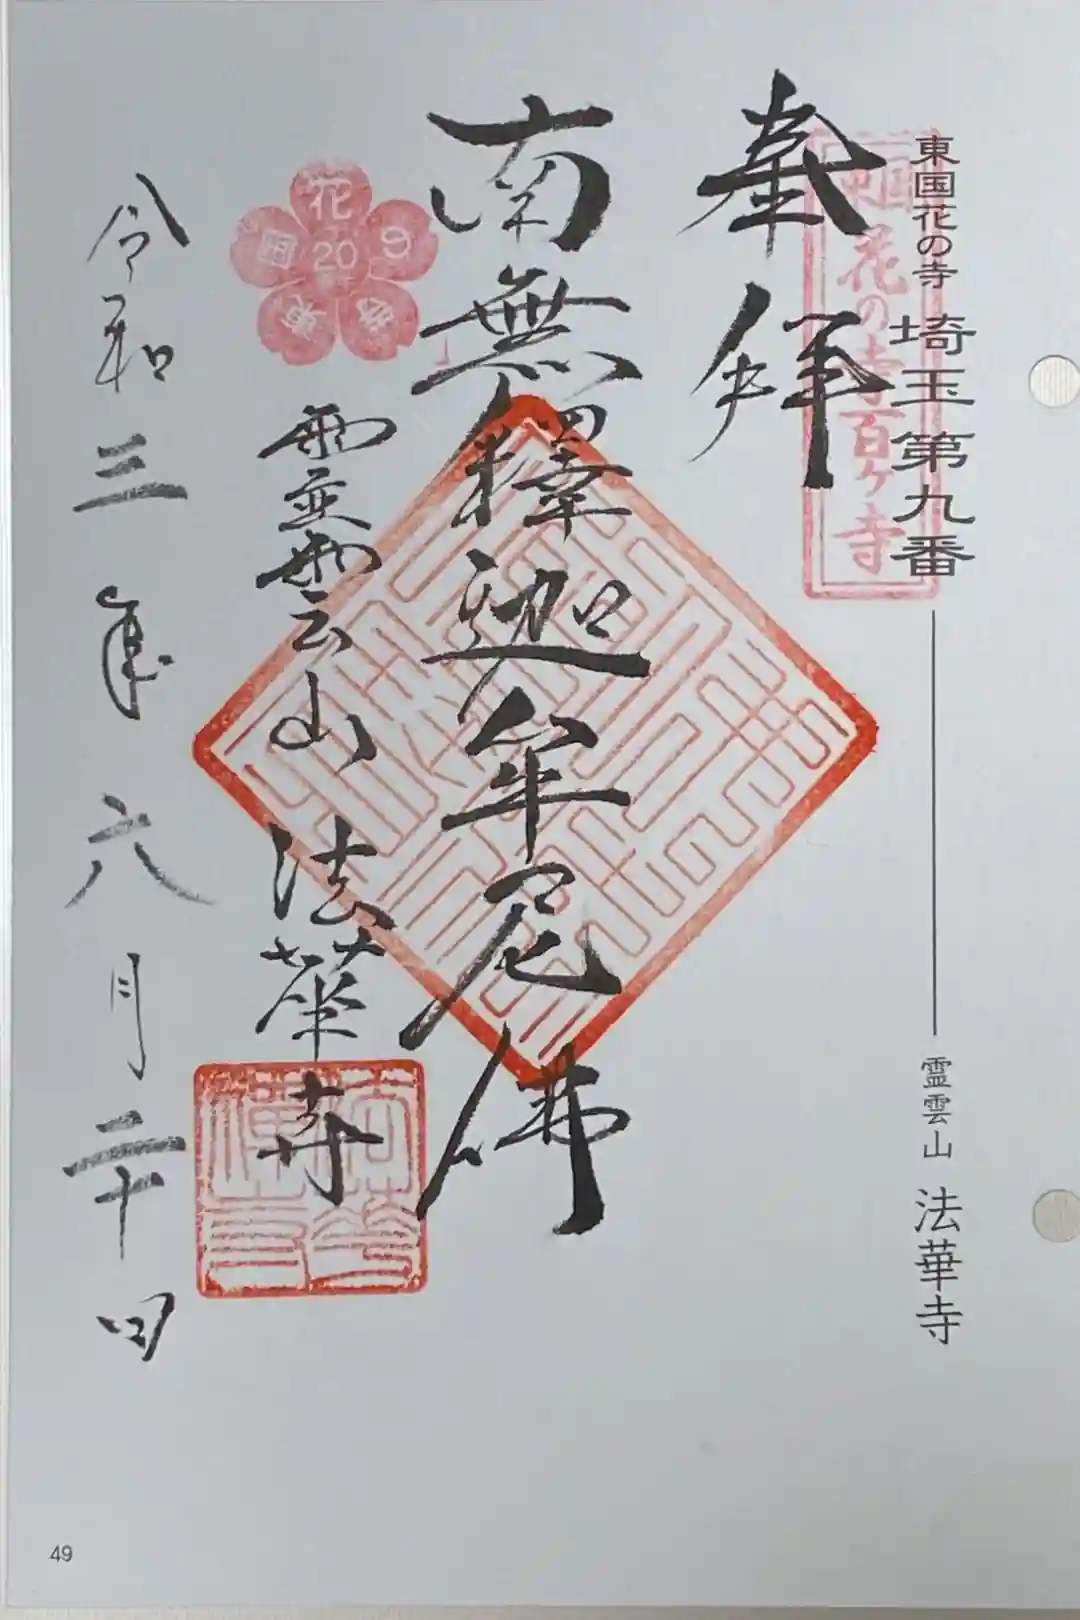 東国花の寺 埼玉第九番
霊雲山 法華寺
東国花の寺百ヶ寺
奉拝
南無釋迦牟尼佛
花の寺
東国
20
靈雲山 法華寺
令和三年六月二十日
49